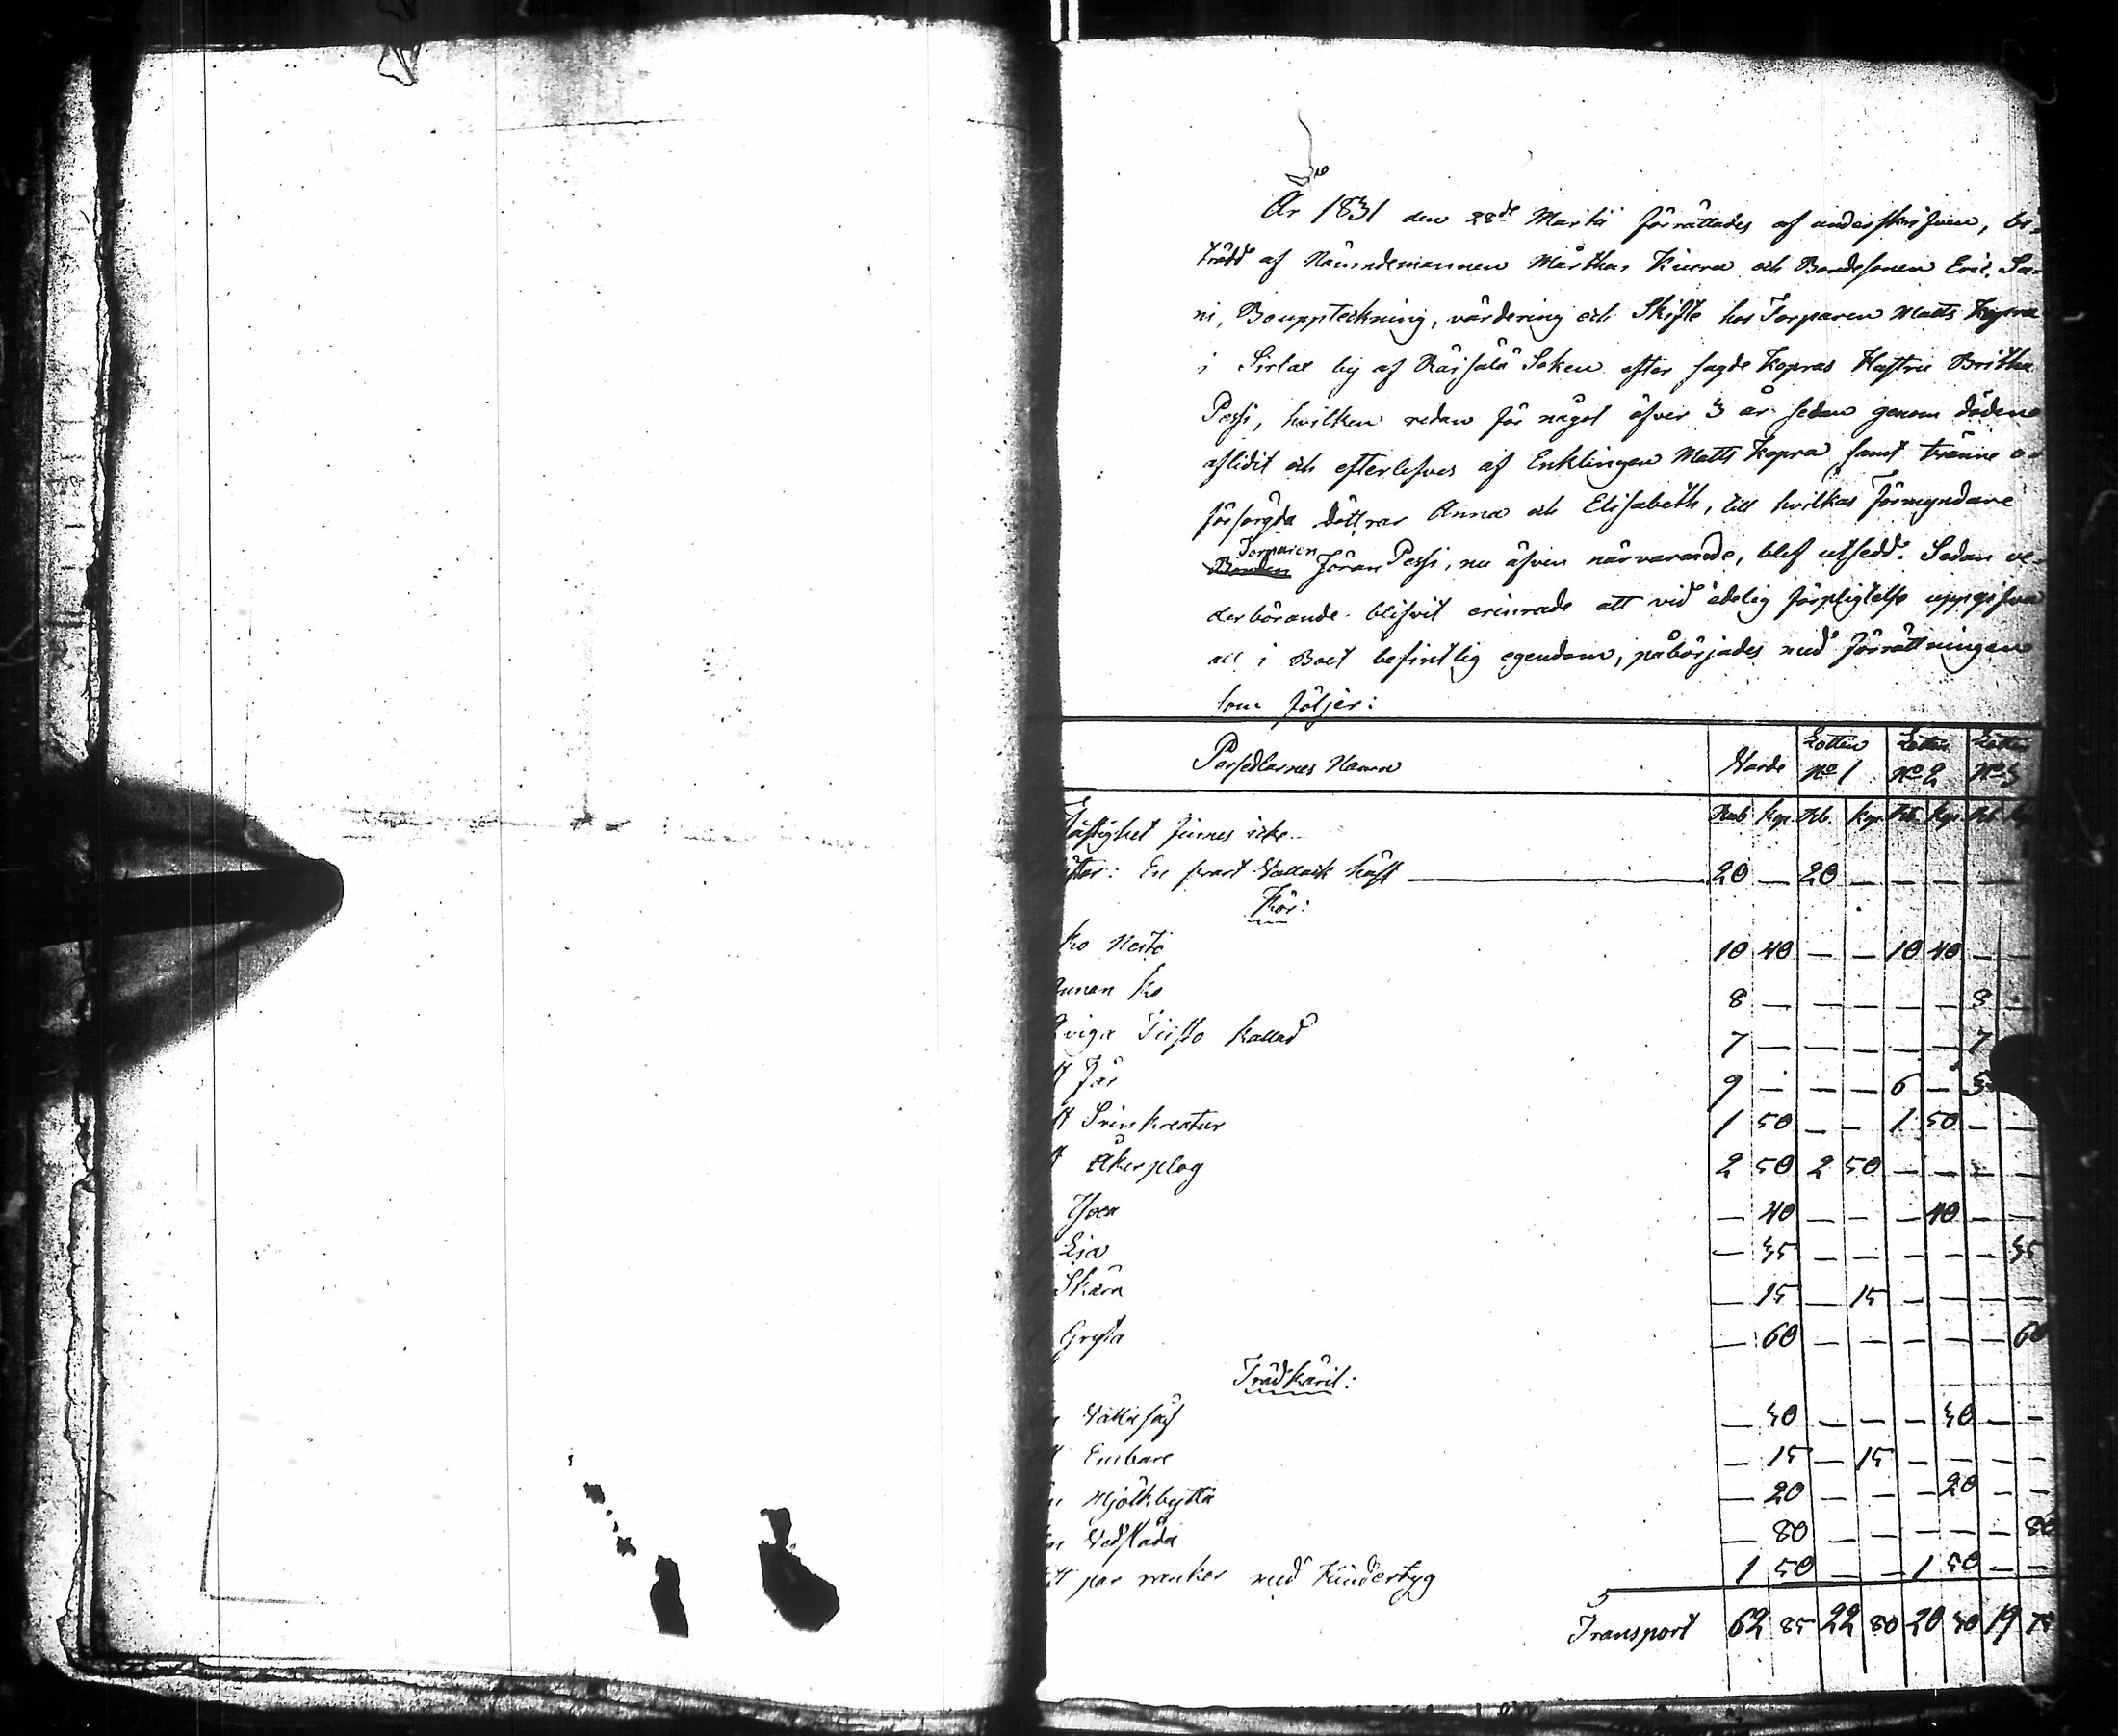 År 1831 den 28de Martii förrättades af underskrifven, bi-
trädd af Nämndemannen Märthen Kiura och Bondesonen Eric Sa-
ni, Bouppteckning, värdering och Skifte hos Torparen Matts Kopra
i Sirlax by af Räisälä Soken efter sagde Kopras Hustru Britha
Pessi, hvilken redan för något öfver 3 år sedan genom döden
aflidit och efterlefves af Enklingen Matts Kopra samt tvänne o-
försörgda döttrar Anna och Elisabeth, till hvilkas Förmyndare
Torparen
Bonden Jöran Pessi, nu äfven närvarande, blef utsedd. Sedan ve-
derbörande blifvit erinrade att vid edelig förpligtelse uppgifva
all i Boet befintlig egendom, påbörjades med förrättningen
som följer:
Persedlarnes Namn Värde Lotten No 1 Lotten No 2 Lotten No 3
Rub Kop Rb. Kop. Rb. Kop. Rb
Fästighet finnes icke
En svart Vallack häst 20 — 20 — — — — —
Kor:
Ko 10 40 — — 10 40 — —
annan Ko 8 — — — — — 8 —
Qviga kallad 7 — — — — — 7
tt Får 9 — — — 6 — 3
tt Svinkreatur 1 50 — — 1 50 — —
Åkerplog 2 50 2 50 — — — —
Yxa — 40 — — — 40 — —
Lia — 35 — — — — — 35
Skära — 15 — 15 — — — —
Gryta — 60 — — — — — 60
Trädkäril:
— 30 — — — 30 — —
Embare — 15 — 15 — — — —
Mjölkbytta — 20 — — — 20 — —
— 80 — — — — — 80
tt par med 1 50 — — 1 50 — —
Transport 62 85 22 80 20 30 19 75